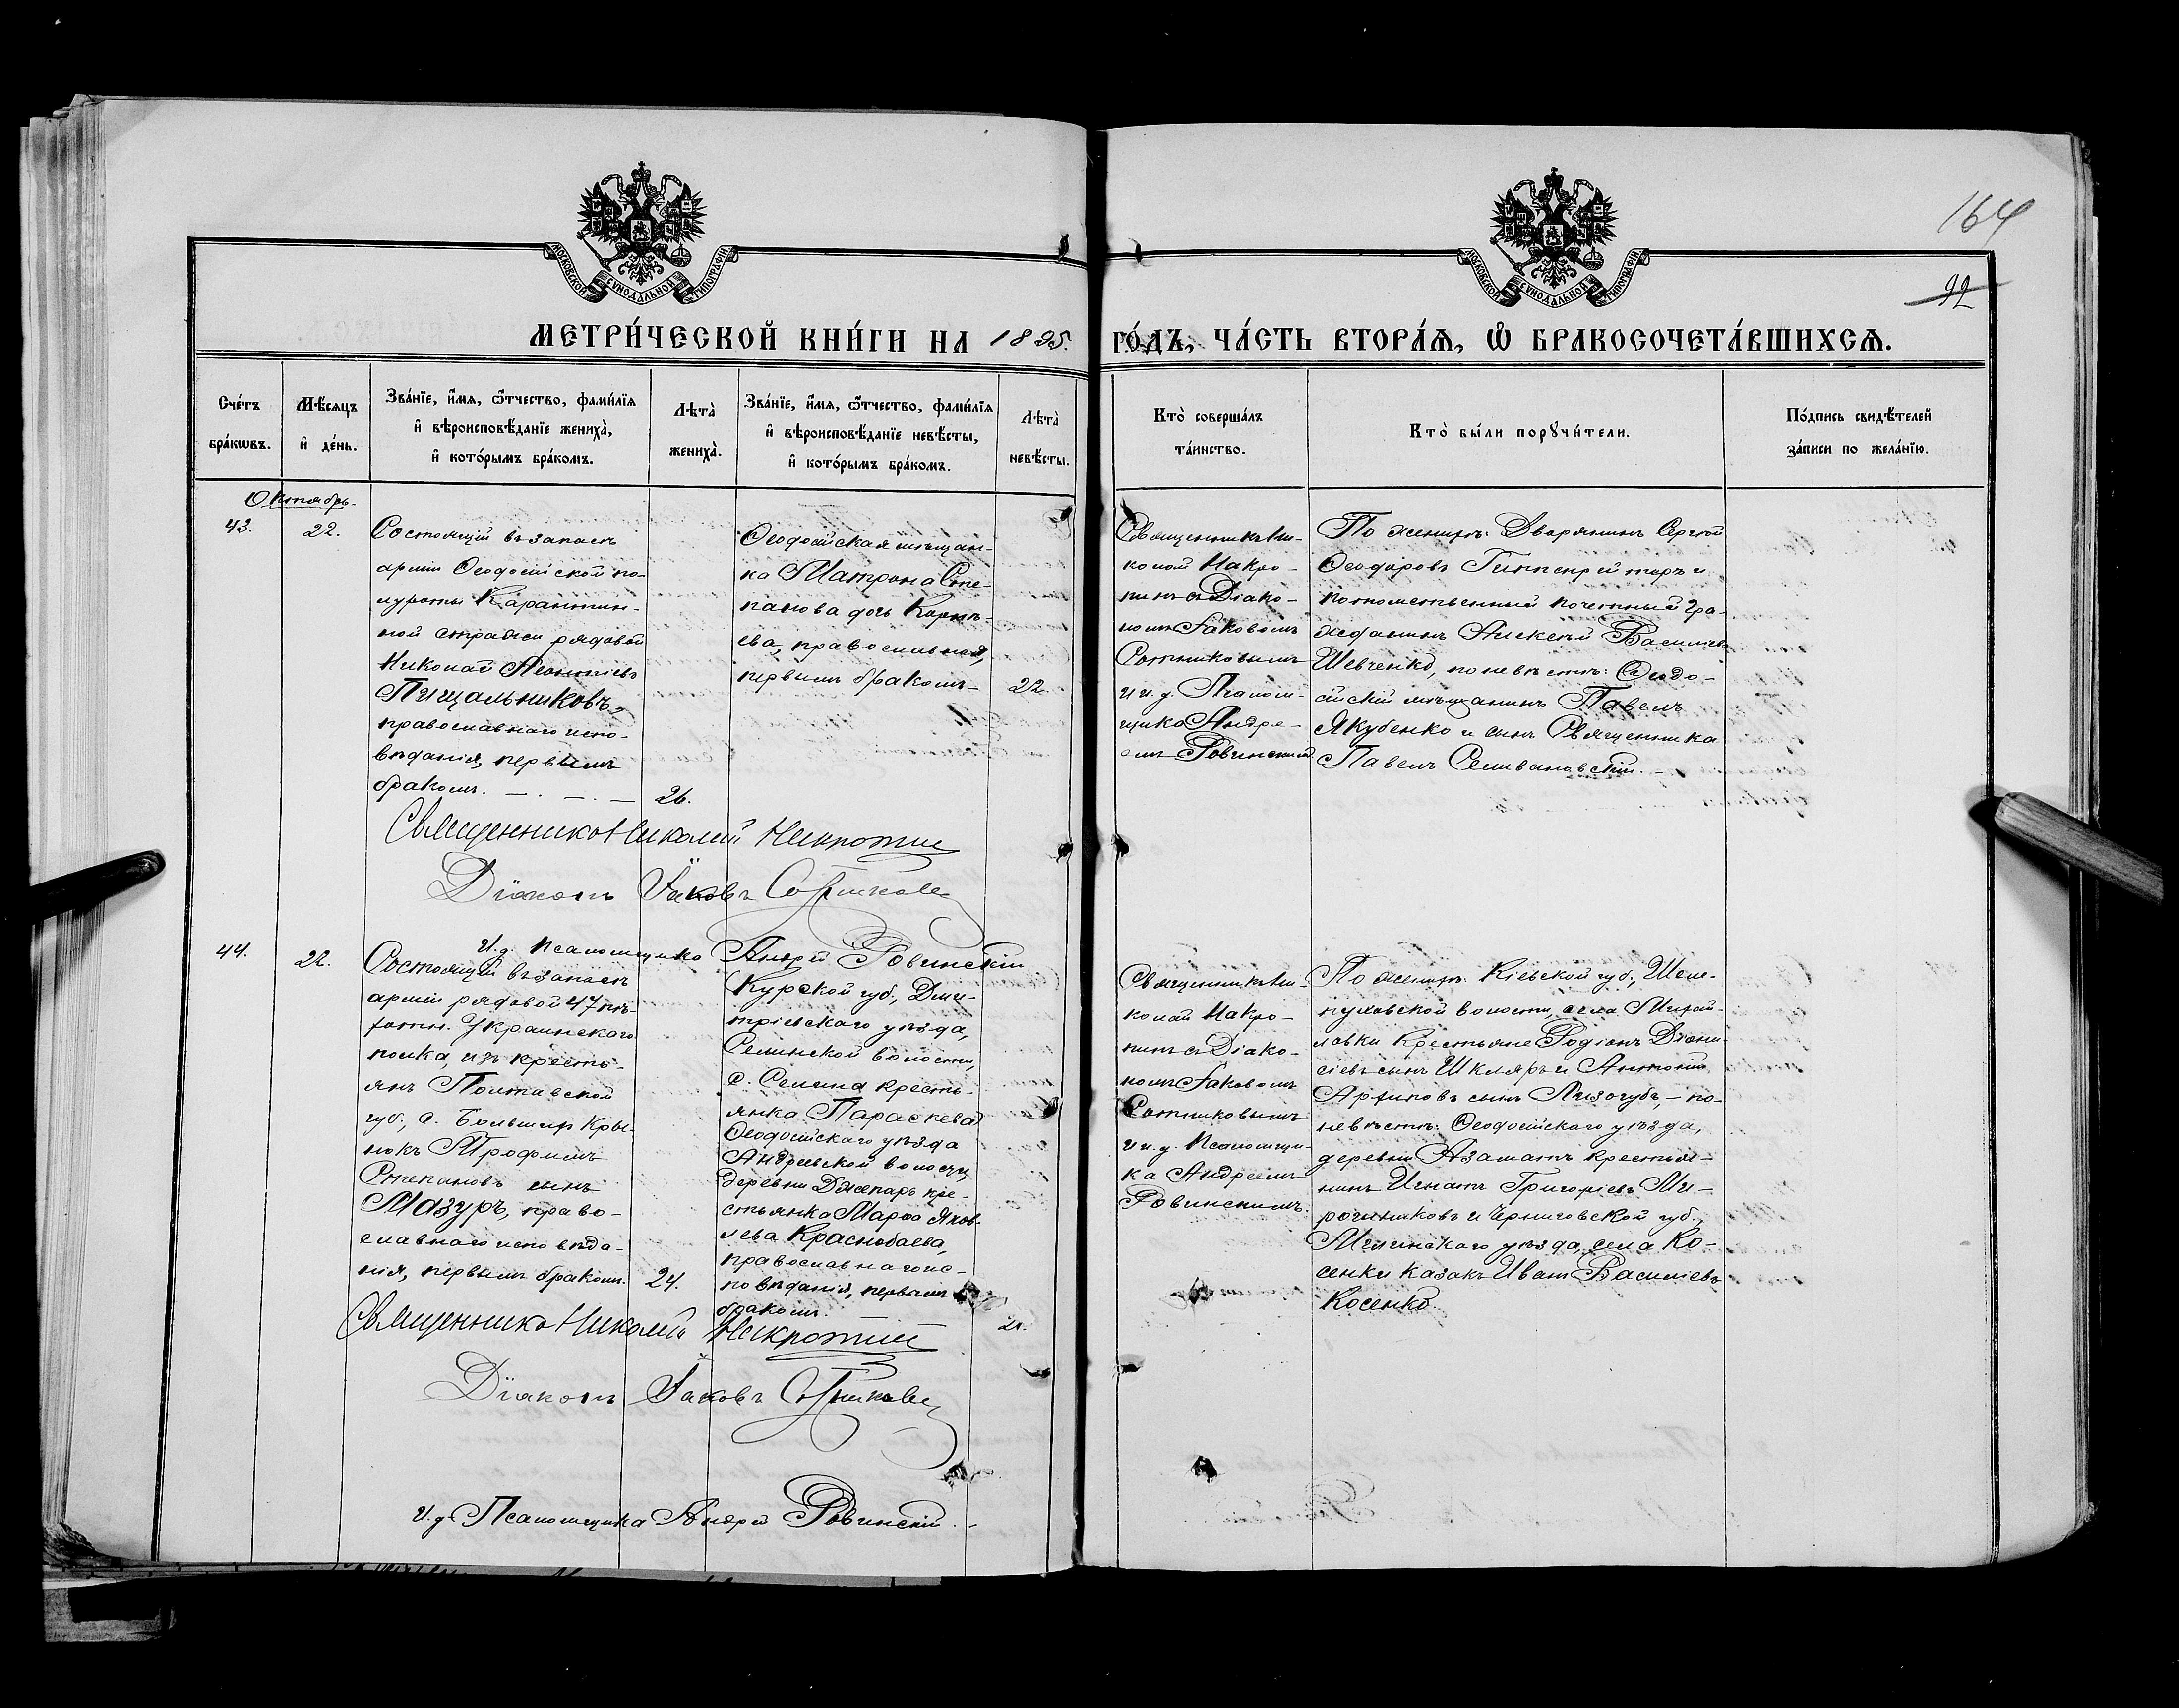 164
92
МОСКОВСКОЙ СУНОДАЛЬНОЙ ТИПОГРАФІИ
МОСКОВСКОЙ СУНОДАЛЬНОЙ ТИПОГРАФІИ
МЕТРИ́ЧЕСКОЙ КНИ́ГИ НА 1895. ГО́ДЪ, ЧА́СТЬ ВТОРА́Ѧ, Ѽ БРАКОСОЧЕТА́ВШИХСѦ.
Сче́тъ
бра́кѡвъ.
Мѣ́сѧцъ
и҆ де́нь.
Зва́нїе, и҆́мѧ, ѻ҆́тчество, фамі́лїѧ
и҆ вѣроисповѣ́данїе жениха̀,
и҆ кото́рымъ бра́комъ.
Лѣта̀
жениха̀.
Зва́нїе, и҆́мѧ, ѻ҆́тчество, фамі́лїѧ
и҆ вѣроисповѣ́данїе невѣ́сты,
и҆ кото́рымъ бра́комъ.
Лѣта̀
невѣ́сты.
Кто̀ соверша́лъ
та́инство.
Кто̀ бы́ли порꙋчи́тели.
По́дпись свидѣ́телей
за́писи по жела́нїю.
Октябрь.
43.
22.
Состоящій въ запасѣ
арміи Ѳеодосійской по-
луроты Карантин-
ной стражи рядовой
Николай Леонтіевъ
Пищальниковъ,
православнаго испо-
вѣданія, первымъ
бракомъ.
26.
Ѳеодосійская мѣщан-
ка Матрона Сте-
панова дочь Корнѣ-
ева, православная,
первымъ бракомъ
22.
Священникъ Ни-
колай Макро-
пинъ съ Діако-
номъ Іаковомъ
Сотниковымъ
и и. д. Псалом-
щика Андре-
емъ Ровинскимъ.
По женихѣ: Дворянинъ Сергѣй
Ѳеодоровъ Гиппенрейтеръ и
потомственный почетный гра-
жданинъ Алексѣй Васильевъ
Шевченко, по невѣстѣ: Ѳеодо-
сійскій мѣщанинъ Павелъ
Якубенко и сынъ Священника
Павелъ Селивановскій.
Священникъ Николай
Діаконъ Іаковъ Сотниковъ
И. д. псаломщика Андрей Ровинскій
44.
22.
Состоящій въ запасѣ
арміи рядовой 47 пѣ-
хотн. Украинскаго
полка, изъ кресть-
янъ Полтавской
губ., с. Большихъ Кры-
нокъ Трофимъ
Степановъ сынъ
Мазуръ, право-
славнаго исповѣда-
нія, первымъ бракомъ.
24.
Курской губ., Дми-
тріевскаго уѣзда,
Селинской волости,
с. Селина кресть-
янка Параскева
Ѳеодосійскаго уѣзда
Андреевской волости,
деревни Джепаръ кре-
стьянка Марѳа Яков-
лева Краснобаева,
православнаго ис-
повѣданія, первымъ
бракомъ.
21.
Священникъ Ни-
колай Макро-
пинъ съ Діако-
номъ Іаковомъ
Сотниковымъ
и и. д. Псаломщи-
ка Андреемъ
Ровинскимъ.
По женихѣ: Кіевской губ.,
волости, села Михай-
ловки Крестьяне Родіонъ Діони-
сіевъ сынъ Шкляръ и Антоній
Архиповъ сынъ Лизогубъ, - по
невѣстѣ: Ѳеодосійскаго уѣзда,
деревни Азаматъ крестья-
нинъ Игнатъ Григоріевъ Ми-
рочниковъ и Черниговской губ.,
Мглинскаго уѣзда, села Ко-
сенки казакъ Иванъ Василіевъ
Косенко.
Священникъ Николай
Діаконъ Іаковъ Сотниковъ
И. д. Псаломщика Андрей Ровинскій.